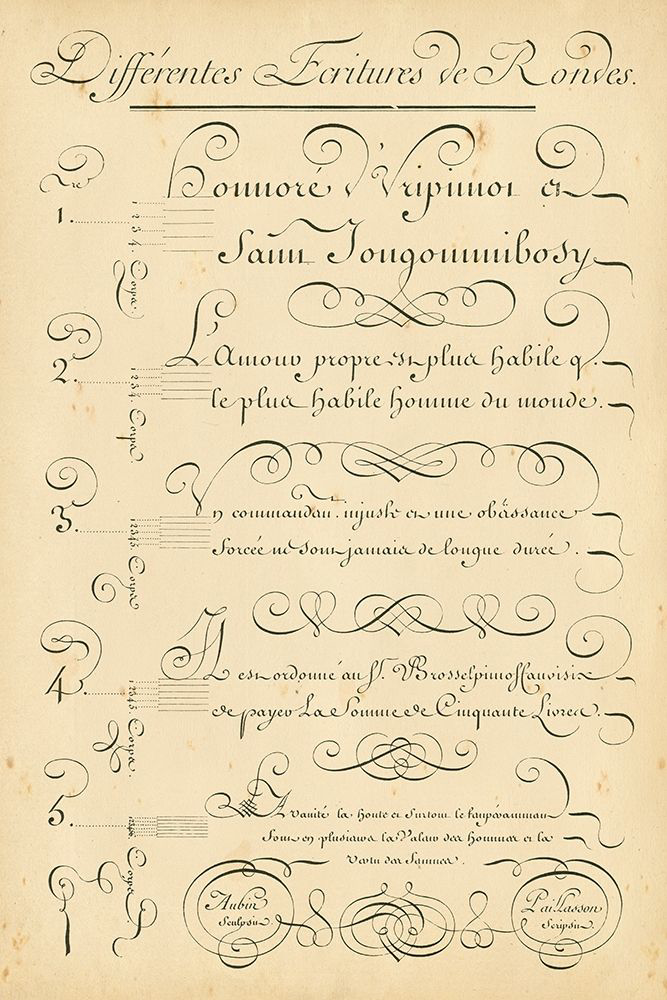 Différentes Ecritures de Rondes.
1.
1 2 3 4. Corps.
Honnoré d'Vripinnot et
Saint Jongonnnibosy
2.
1 2 3 4. Corps.
L'Amour propre est plus habile q.
le plus habile homme du monde.
3.
1 2 3 4 5 Corps
Un commandant injuste et une obäissance
forcée ne sont jamais de longue durée.
4.
1 2 3 4 5 Corps.
Il est ordonné au Sr.
de payer La Somme de Cinquante Livres.
5.
Corps.
La vanité la honte et surtout le tempérammant
font en plusieurs la Valeur des hommes et la
Vertu des femmes.
Aubin
Sculpsit.
Paillasson
Scripsit.